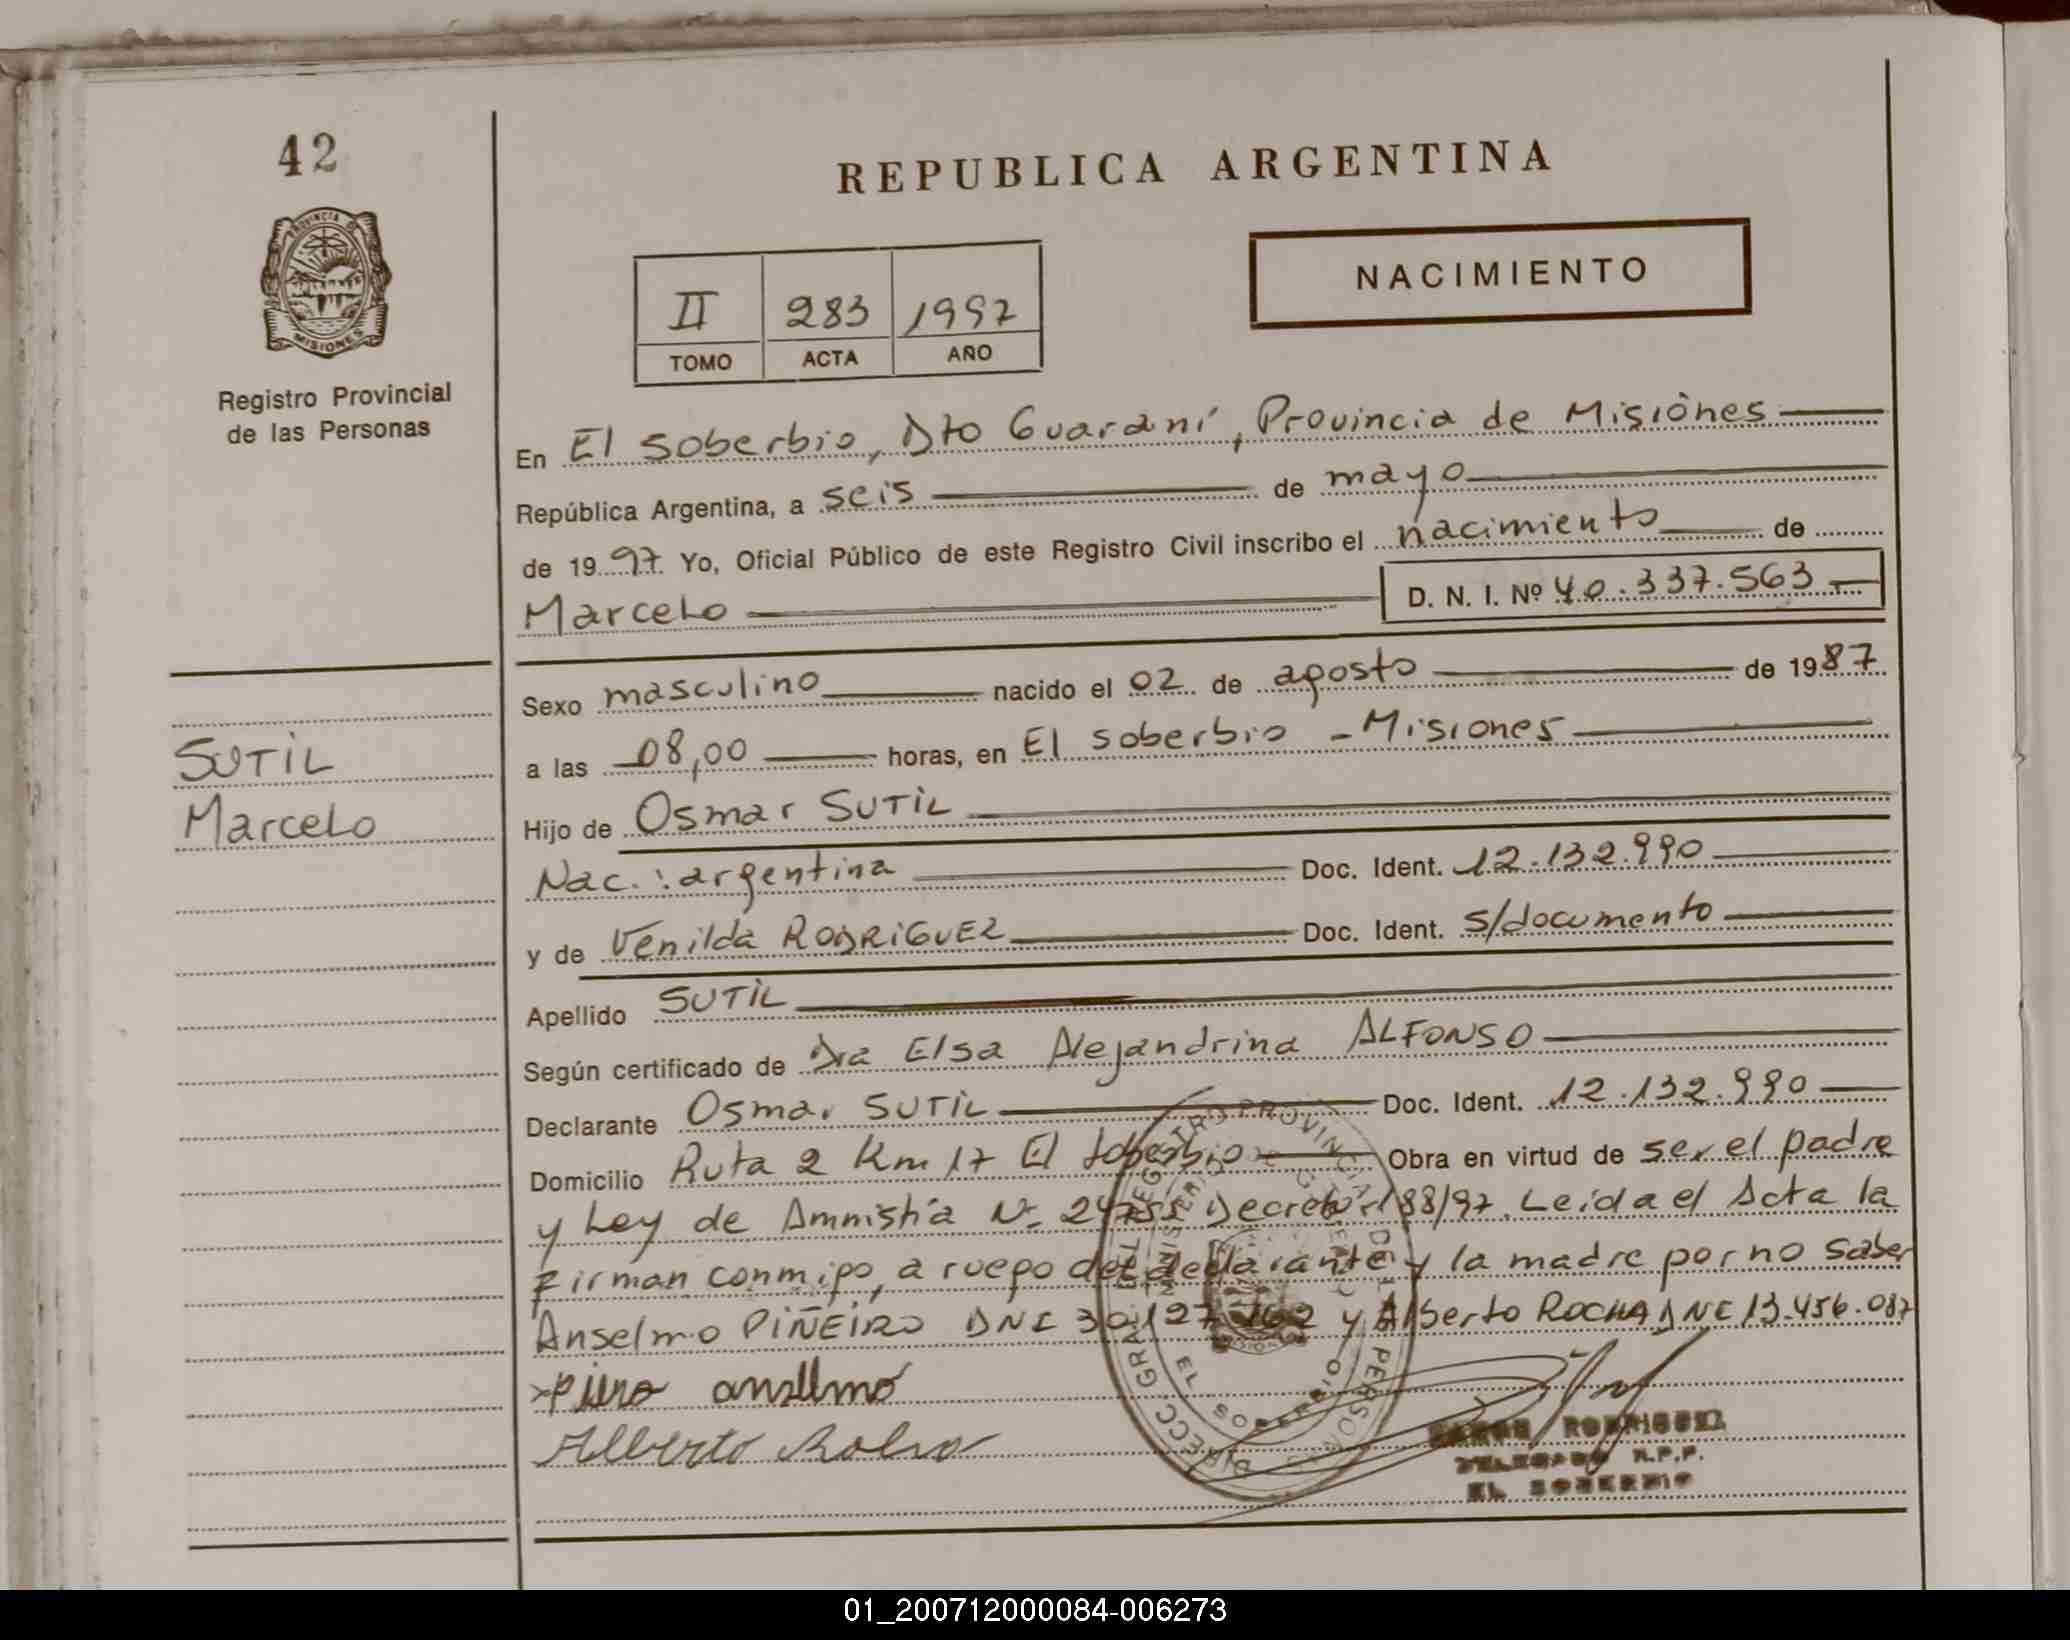 42
REPUBLICA ARGENTINA
PROVINCIA DE
MISIONES
NACIMIENTO
II 283 1997
TOMO ACTA AÑO
Registro Provincial
de las Personas
En El Soberbio, Dto Guaraní, Provincia de Misiones
República Argentina, a seis de mayo
de 1997 Yo, Oficial Público de este Registro Civil inscribo el nacimiento de
Marcelo D. N. I. Nº 40.337.563
Sexo masculino nacido el 02 de agosto de 1987
SUTIL
a las 08,00 horas, en El Soberbio - Misiones
Marcelo
Hijo de Osmar SUTIL
Nac.: argentina Doc. Ident. 12.132.990
y de Venilda RODRIGUEZ Doc. Ident. s/documento
Apellido SUTIL
Según certificado de Dra Elsa Alejandrina ALFONSO
Declarante Osmar SUTIL Doc. Ident. 12.132.990
Domicilio Ruta 2 Km 17 El Soberbio Obra en virtud de ser el padre
y Ley de Amnistía Nº 24755 Decreto 188/97. Leída el Acta la
Firman conmigo, a ruego del declarante y la madre por no saber
Anselmo PIÑEIRO DNI 30.127.162 y Alberto ROCHA DNI 13.456.087
anselmo
Alberto
DIRECC. GRAL. DEL REGISTRO PROVINCIAL DE PERSONAS
MINISTERIO DE
EL SOBERBIO
RODRIGUEZ
DELEGADO R.P.P.
EL SOBERBIO
01_200712000084-006273